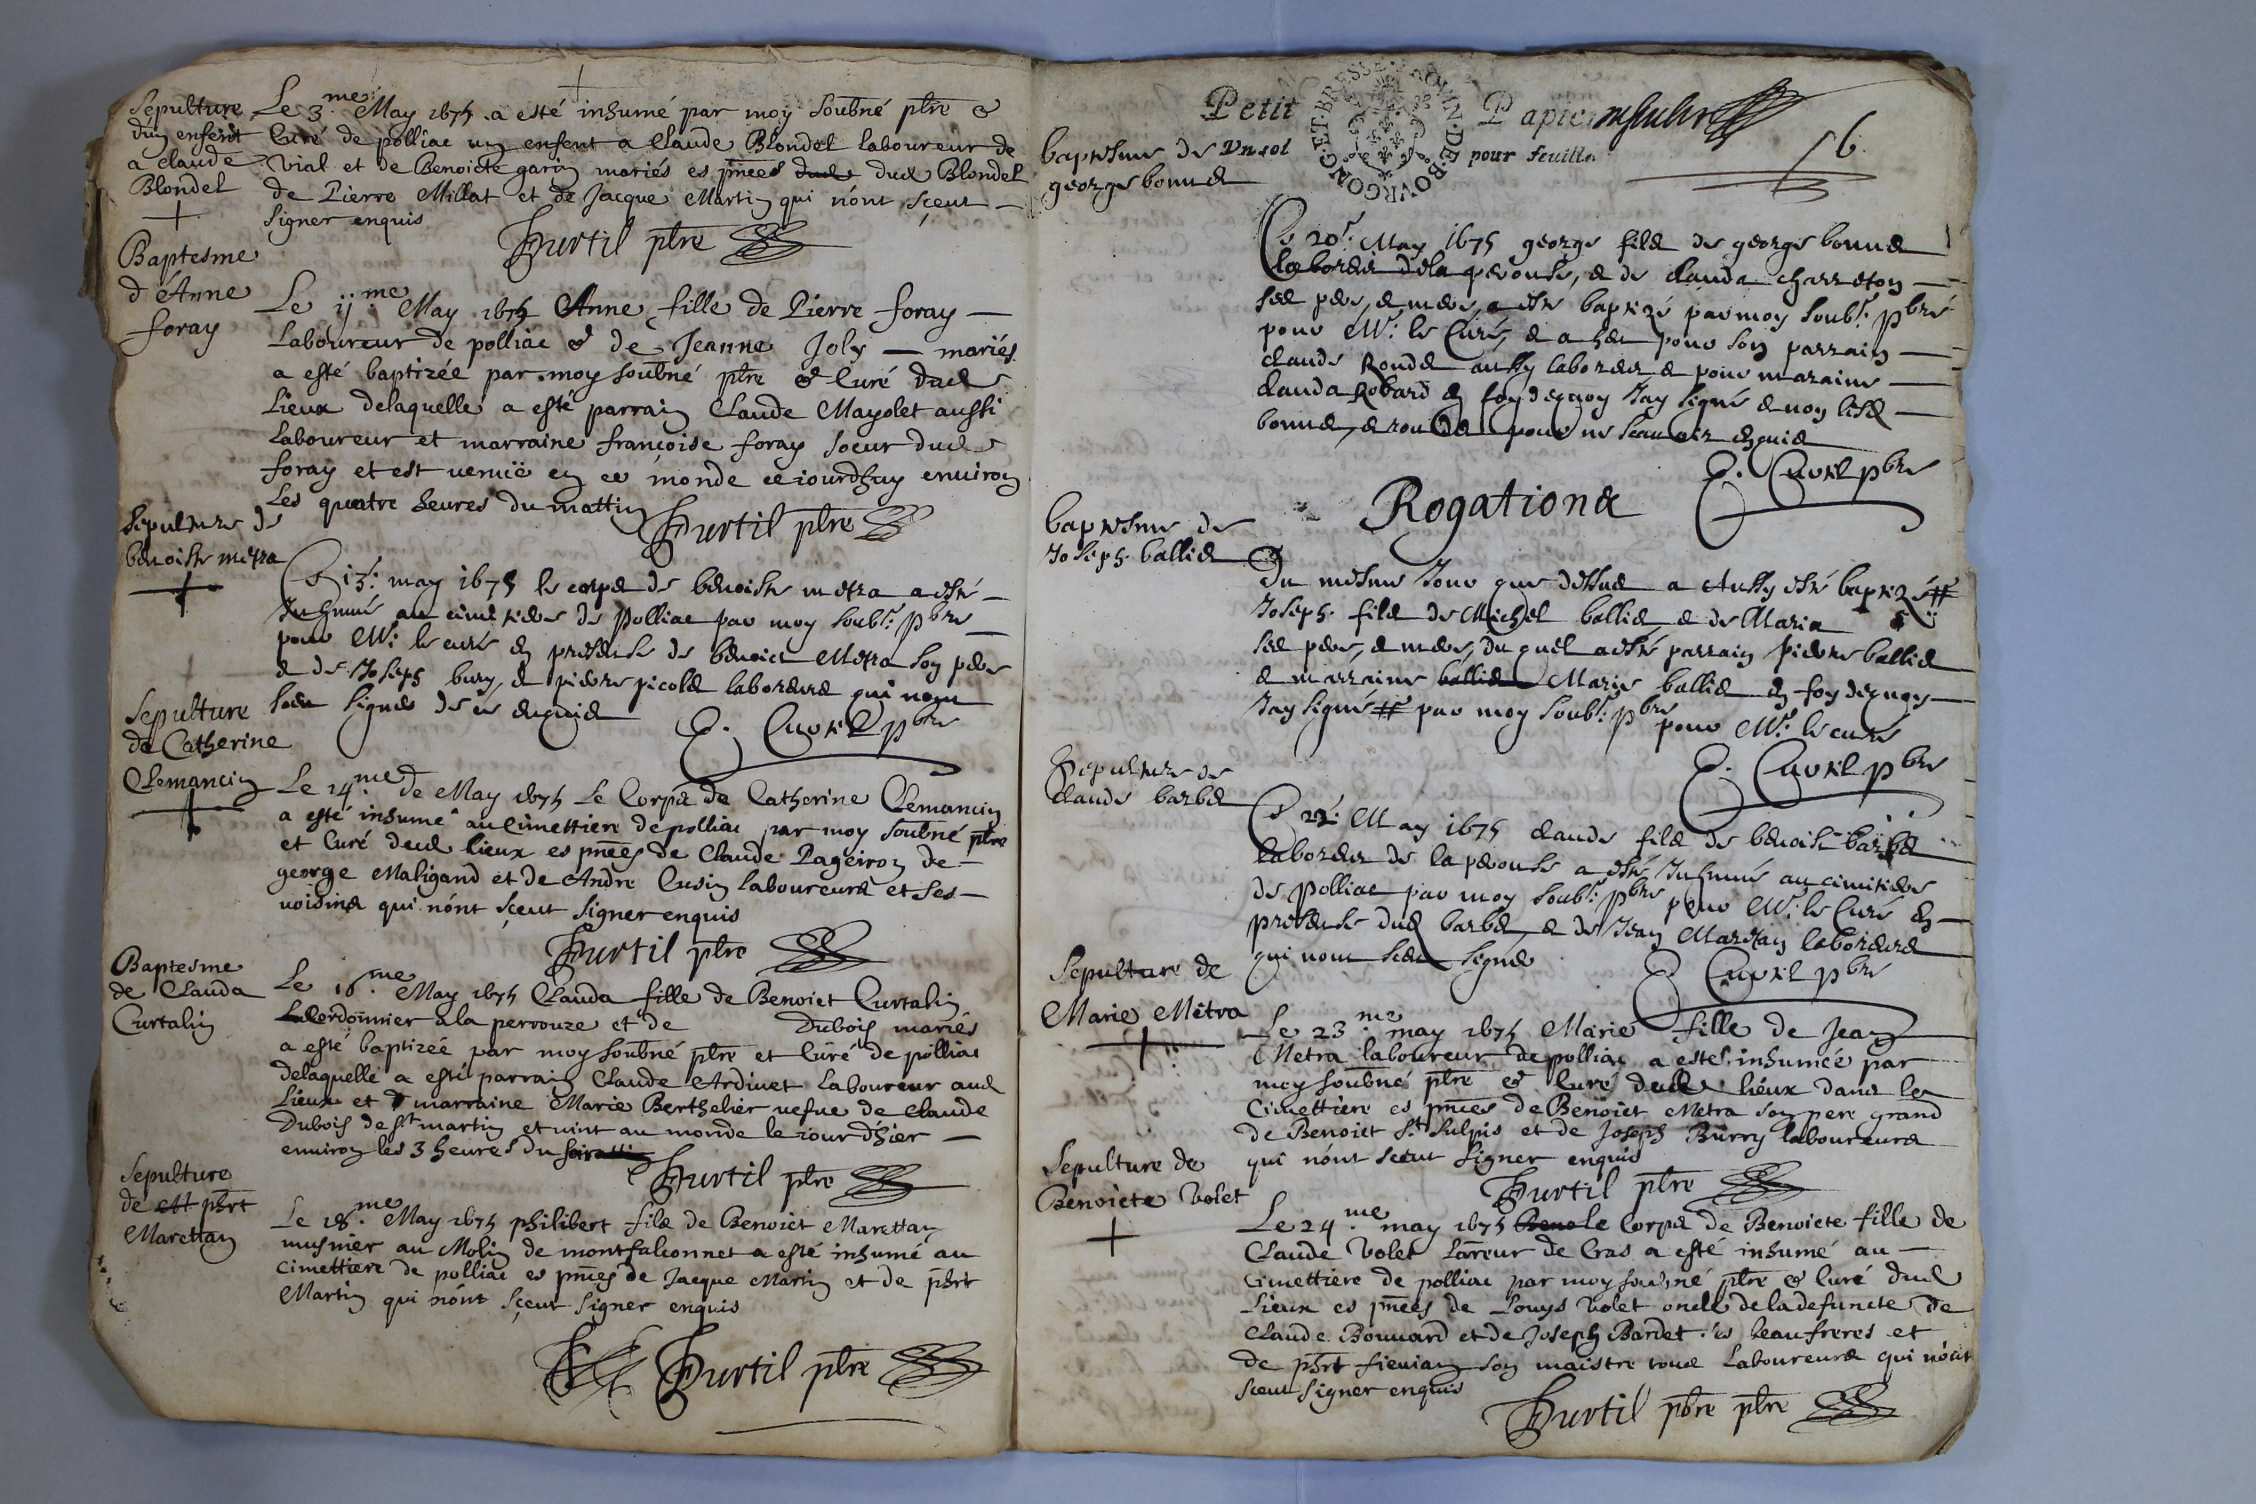 Sepulture
d'un enfent
a claude
Blondel
Le 3.me May 1675 a esté inhumé par moy soubné ptre &
Curé de polliac un enfent a Claude Blondel laboureur de
vial et de Benoicte garin mariés es pnces dud Blondel
de Pierre Millat et de Jacque Martin qui n'ont sçeut
signer enquis
Hurtil ptre
Baptesme
d'Anne
foray
Le ij.me May 1675 Anne fille de Pierre foray
Laboureur de polliac & de Jeanne Joly mariés
a esté baptizée par moy soubné ptre & Curé dud
Lieux delaquelle a esté parrain Claude Mayolet aussi
Laboureur et marraine françoise foray soeur dud
foray et est venuë en ce monde ce iourdhuy environ
Les quatre heures du mattin
Hurtil ptre
sepulture de
benoiste metra
Ce 13: may 1675 le corps de benoiste metra a esté
Inhumé au cimetiere de Polliac par moy soubt: pbre
pour Mr: le curé en presence de benoict Metra son pere
& de Joseph bury, & pierre picola laboreurs qui nont
sceu signer de ce enquis
E. Cuvrl pbre
Sepulture
de Catherine
Clemancin
Le 14.me de May 1675 Le Corps de Catherine Clemancin
a esté inhumé au Cimettiere de polliac par moy soubné ptre
et Curé dud lieux es pnces de Claude Pageiron de
george Maligand et de Andre Cusin laboureurs et ses
voisins qui n'ont sçeut signer enquis
Hurtil ptre
Baptesme
de Clauda
Curtalin
Le 16.me May 1675 Clauda fille de Benoict Curtalin
Cordonnier a la perrouze et de Dubois mariés
a esté baptizeé par moy soubné ptre et Curé de polliac
delaquelle a esté parrain Claude Ardinet Laboureur aud
Lieux et marraine Marie Berthelier vefue de claude
Dubois de st martin et vint au monde le iour d'hier
environ les 3 heures du soir
Hurtil ptre
Sepulture
de phrt
Marettan
Le 18.me May 1675 philibert fils de Benoict Marettan
musnier au Molin de montfalconnet a esté inhumé au
cimettiere de polliac es pnces de Jacque Martin et de phrt
Martin qui n'ont sçeut signer enquis
Hurtil ptre
Petit Papier
Un sol pour feuille
BOURGONG·ET·BRESSE
16
baptesme de
george bonnet
Ce 20e: May 1675 george fils de george bonnet
laboreur de la perouse, & de clauda charreton
ses pere, & mere, a esté baptizé par moy soubt: pbre
pour Mr: le Curé, & a heu pour son parrain
claude Rondet aussy laboreur & pour maraine
clauda Robard en foy dequoy Jay signé & non lesd
bonnet, & rondet pour ne scauoir enquis
E. Cuvrl pbre
Rogations
baptesme de
Joseph ballied
Du mesme Jour que dessus a Aussy esté baptizé #
Joseph fils de Michel ballied & de Maria
ses pere, & mere, du quel a esté parrain pierre ballied
& marraine Marie ballied en foy dequoy
Jay signé # par moy soubt: pbre pour Mr: le curé
E. Cuvrl pbre
Sepulture de
claude barbet
Ce 22: May 1675 claude fils de benoist barbet
laboreur de la perouse a esté Inhumé au cimitiere
de Polliac par moy soubt: pbre pour Mr: le Curé en
presence dud barbet, & de Jean Marttan laboreurs
qui nont sceu signer
E. Cuvrl pbre
Sepulture de
Marie Metra
Le 23.me may 1675 Marie fille de Jean
Metra laboureur de polliac a esté inhumeé par
moy soubné ptre & Curé dud lieux dans le
Cimettiere es pnces de Benoict Metra son pere grand
de Benoict St Sulpis et de Joseph Burry laboureurs
qui n'ont sceut signer enquis
Hurtil ptre
Sepulture de
Benoicte Volet
Le 24.me may 1675 le Corps de Benoicte fille de
Claude Volet Labreur de Cras a esté inhumé au
cimettiere de polliac par moy soubné ptre & Curé dud
Lieux es pnces de Louys Volet oncle de la defuncte de
Claude Bouuard et de Joseph Bardet ses beaufreres et
de phrt fieuian son maistre tous Laboureurs qui n'ont
sceut signer enquis
Hurtil ptre ptre